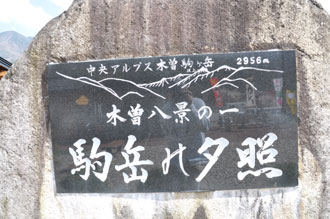 中央アルプス木曽駒ヶ岳 2956m
木曽八景の一
駒岳の夕照